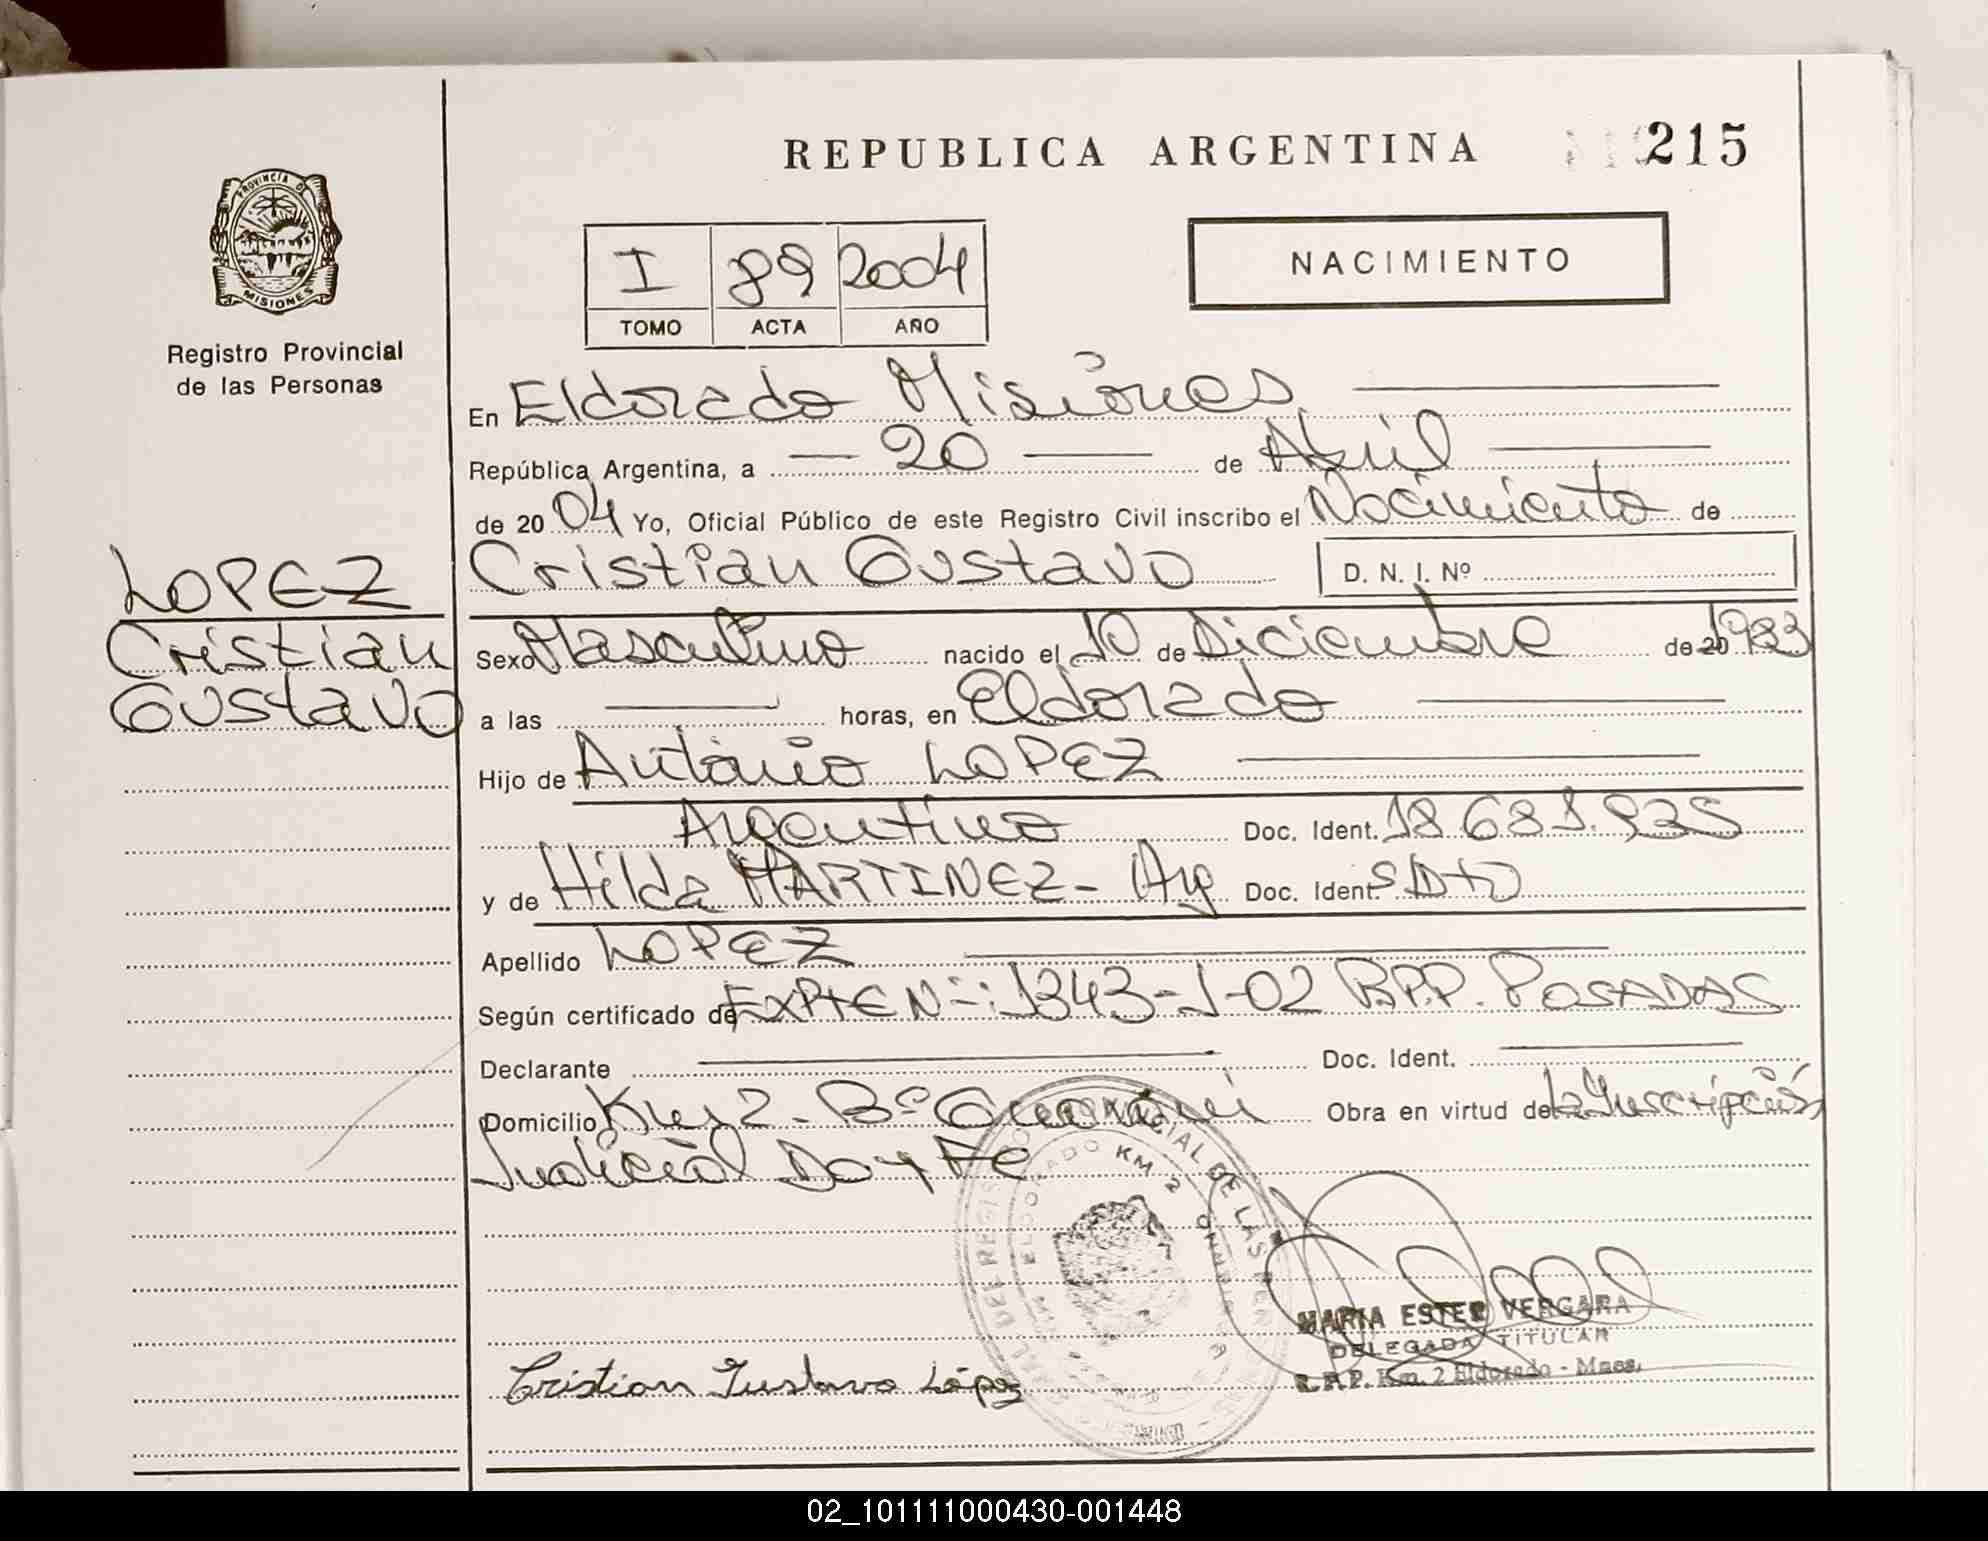 REPUBLICA ARGENTINA 215
PROVINCIA DE
MISIONES
Registro Provincial
de las Personas
I 89 2004
TOMO ACTA AÑO
NACIMIENTO
En Eldorado Misiones
República Argentina, a 20 de Abril
de 2004 Yo, Oficial Público de este Registro Civil inscribo el Nacimiento de
Cristian Gustavo D. N. I. Nº
LOPEZ
Cristian
Gustavo
Sexo Masculino nacido el 10 de Diciembre de 20 1983
a las horas, en Eldorado
Hijo de Antonio LOPEZ
Argentino Doc. Ident. 18.681.925
y de Hilda MARTINEZ - Arg Doc. Ident.
Apellido LOPEZ
Según certificado de EXPTE Nº: 1343-J-02 R.P.P. POSADAS
Declarante Doc. Ident.
Domicilio Km 2 - Bº Guaraní Obra en virtud de la Inscripción
Judicial Doy Fe
ELDORADO KM 2
MARIA ESTER VERGARA
DELEGADA TITULAR
R.P.P. Km. 2 Eldorado - Mnes.
Cristian Gustavo López
02_101111000430-001448